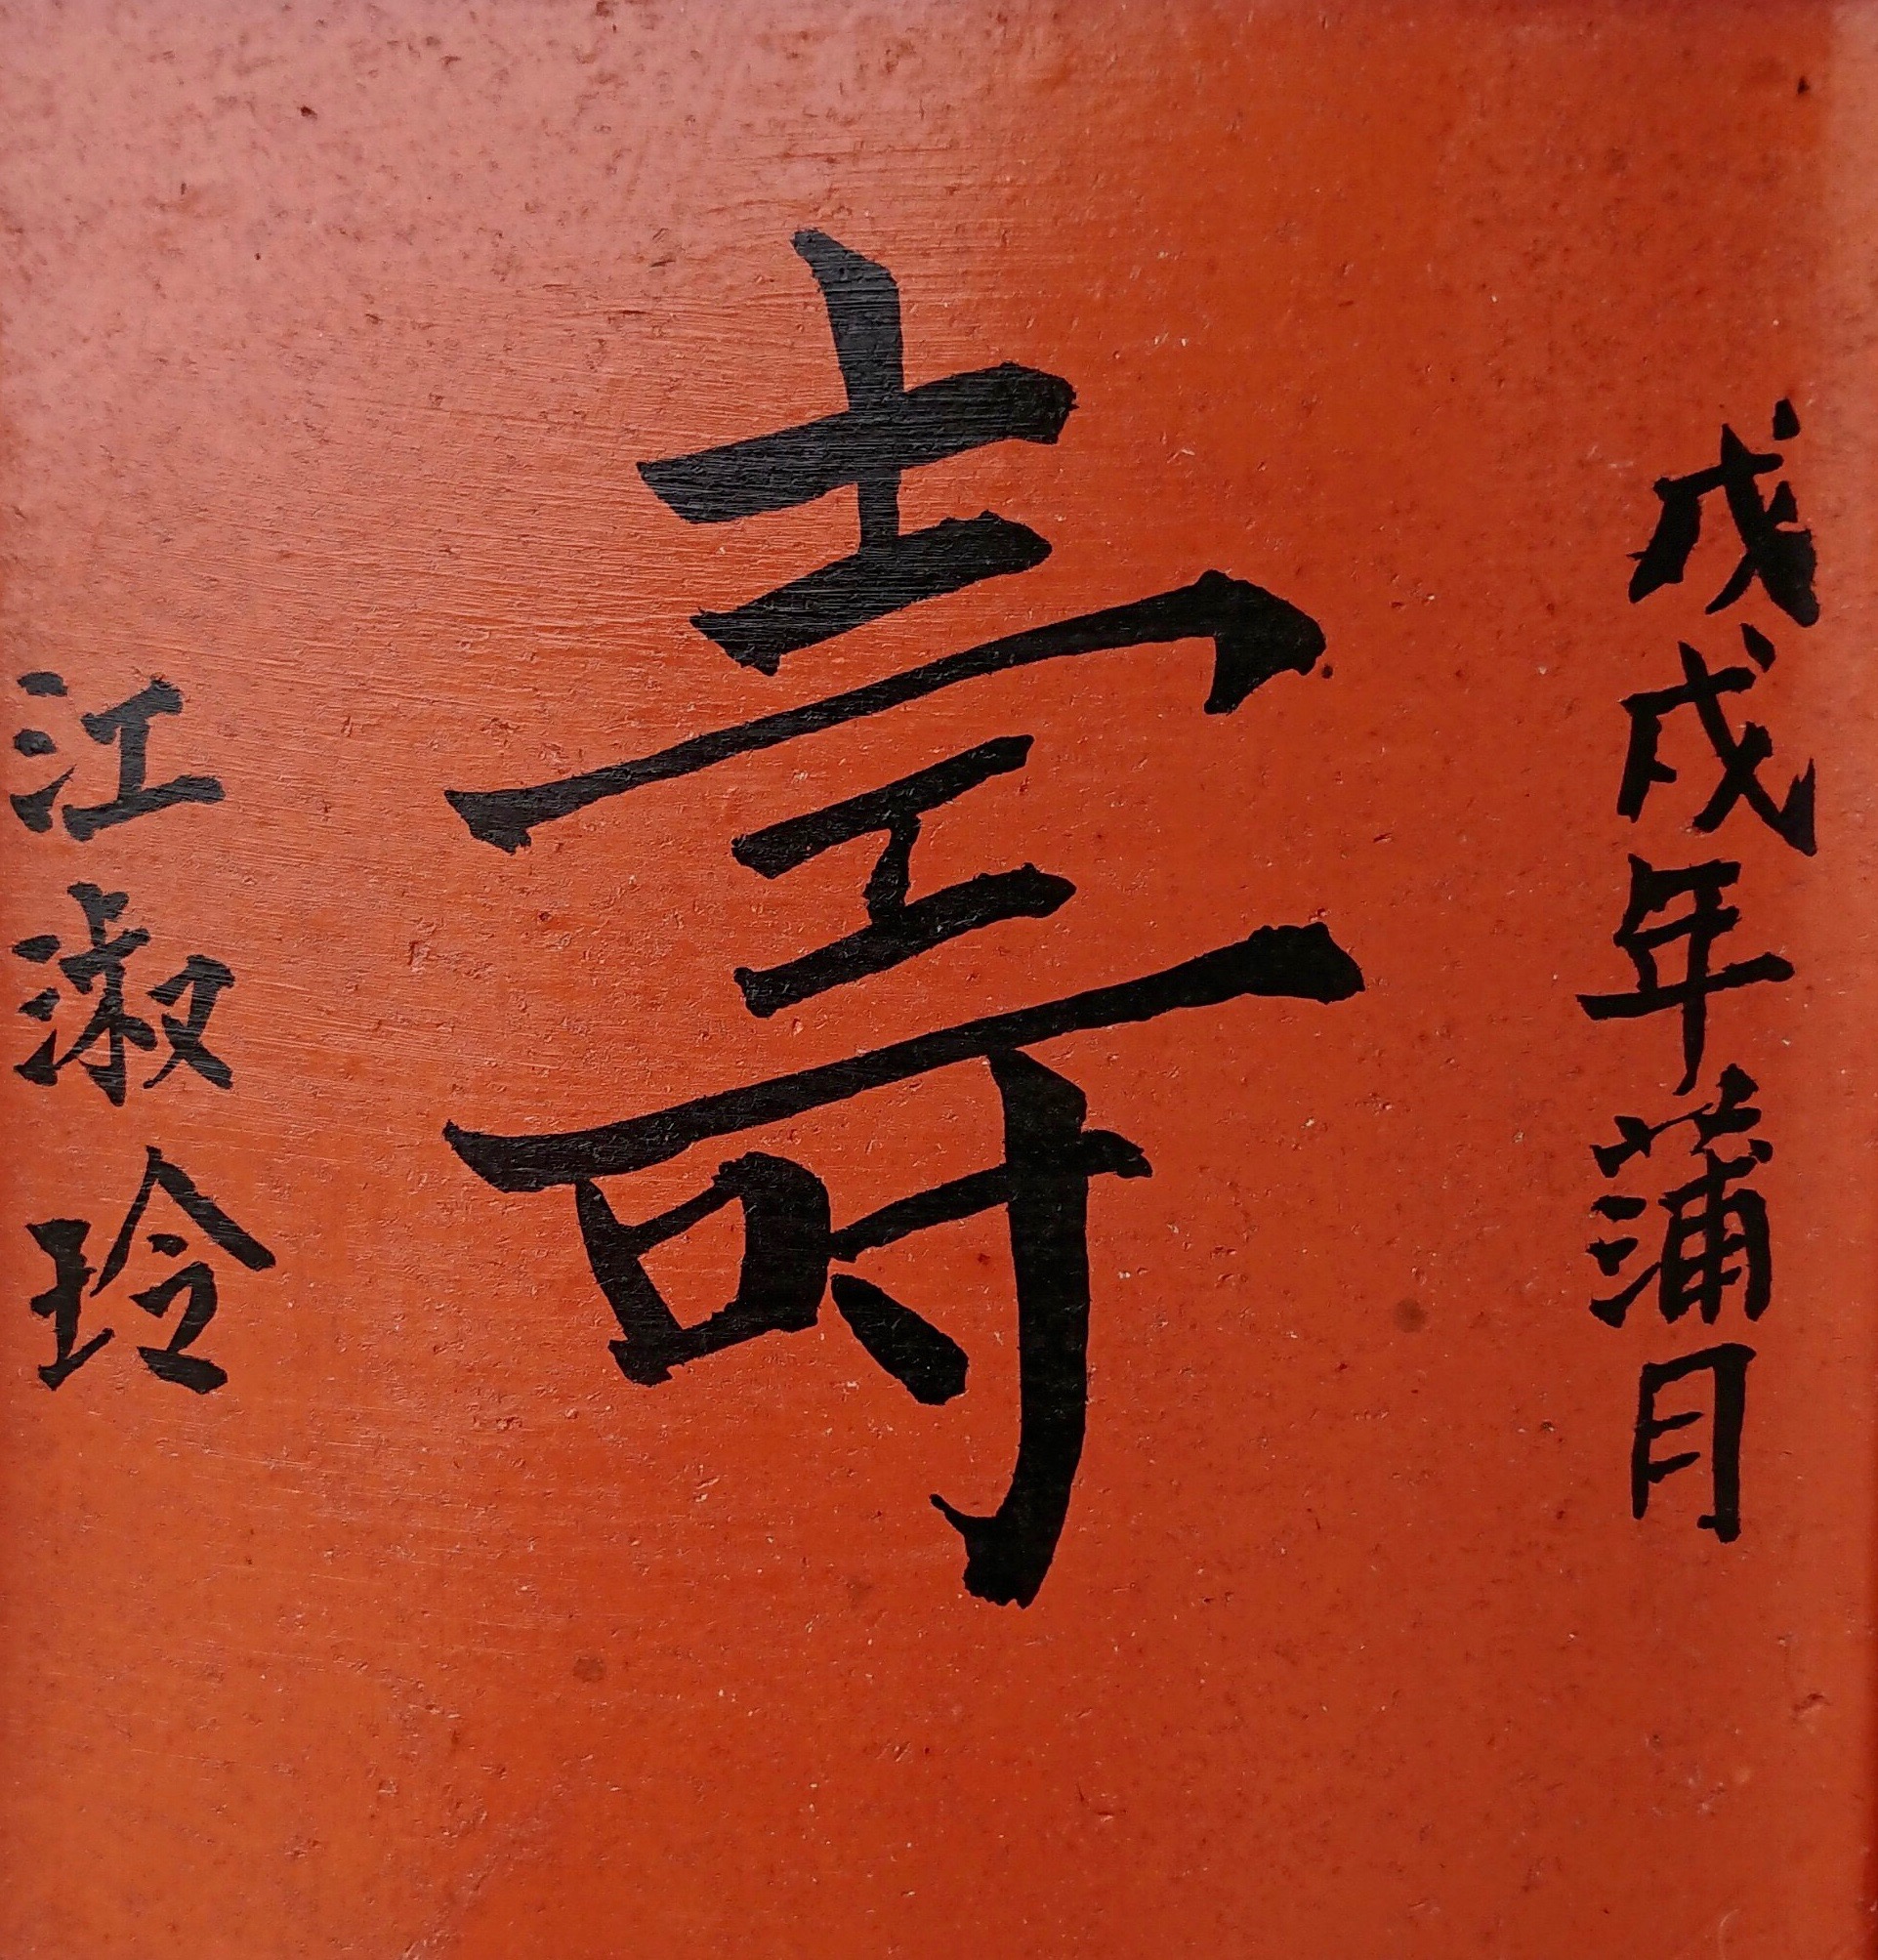 戊戌年蒲月
壽
江淑玲